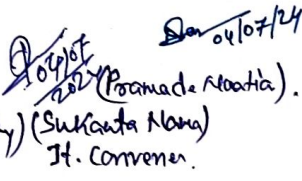 04/07/24
04/07
2024 (Pramada Noatia).
y) (Sukanta Nama)
Jt. Convener.